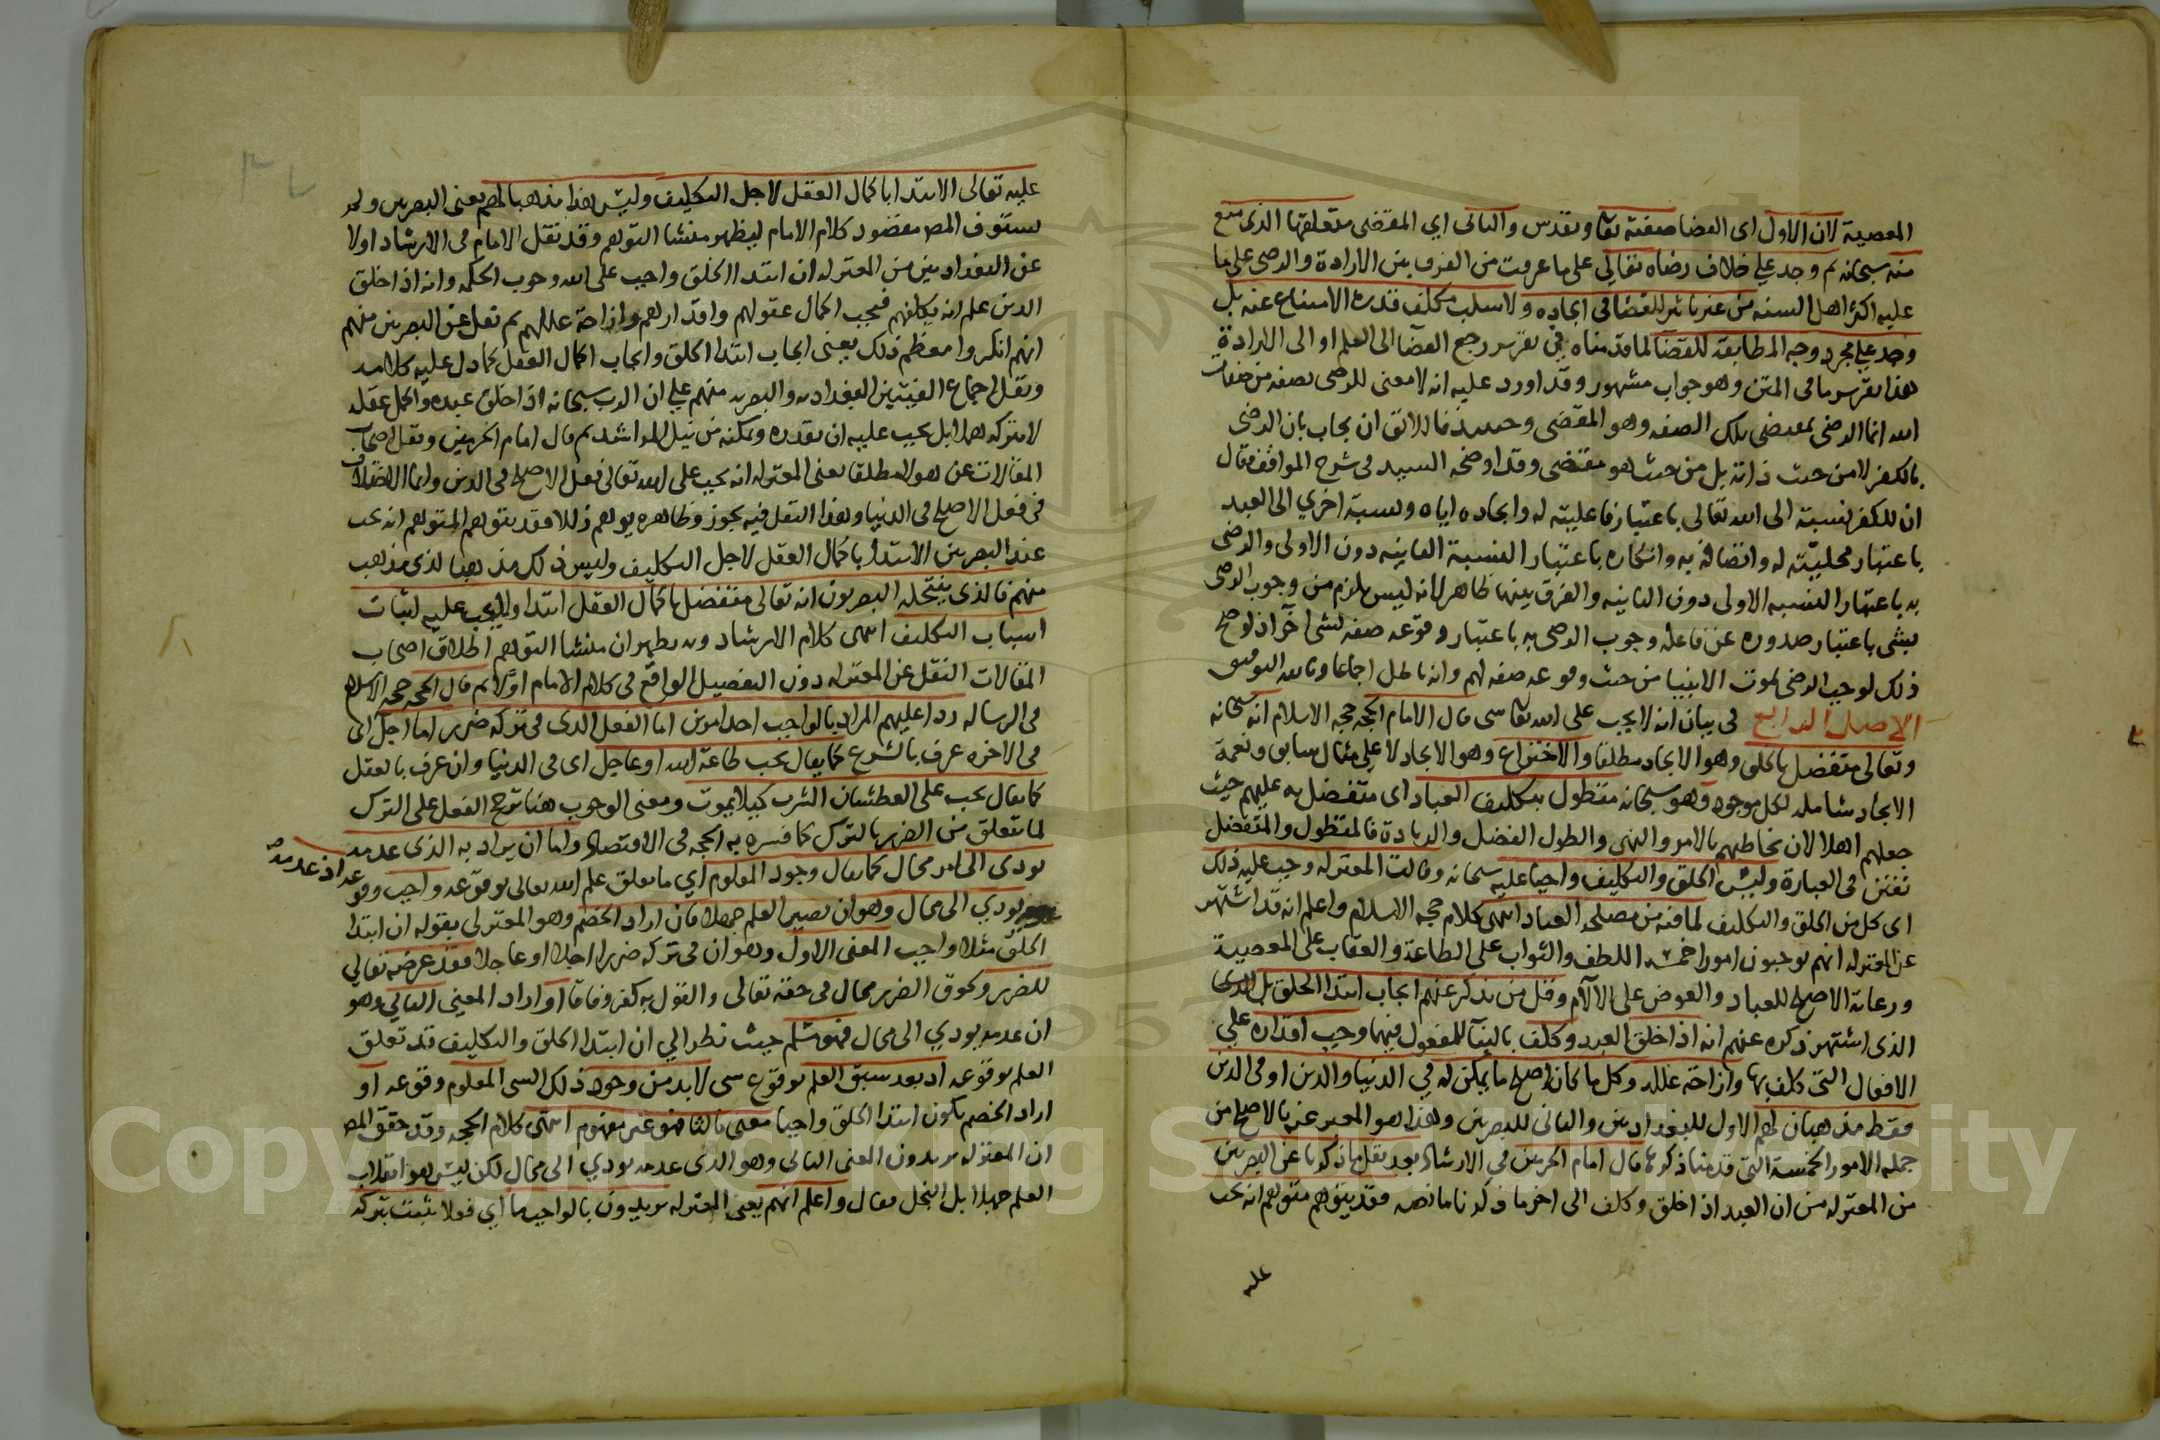 المعصية لان الاول اى القضا صفته تعالى وتقدس والثانى اي المقضى متعلقها الذى منع
منه سبحانه ثم وجد على خلاف رضاه تعالى على ما عرفت من الفرق بين الارادة والرضى على ما
عليه اكثر اهل السنه من غير تاثير للقضا فى ايجاده ولا سلب مكلف قدرة الامتناع عنه بل
وجد على مجرد وجه المطابقه للقضا لما قدمناه فى تقرير رجع القضا الى العلم او الى الارادة
هذا تقرير ما فى المتن وهو جواب مشهور وقد اورد عليه انه لا معنى للرضى بصفه من صفات
الله انما الرضى بمقتضى تلك الصفه وهو المقضى وحينئذ فاللائق ان يجاب بان الرضى
بالكفر لا من حيث ذاته بل من حيث هو مقضى وقد اوضحه السيد فى شرح المواقف فقال
ان للكفر نسبة الى الله تعالى باعتبار فاعليته له وايجاده اياه ونسبة اخري الى العبد
باعتبار محليته له واتصافه به وانكاره باعتبار النسبة الثانيه دون الاولى والرضى
به باعتبار النسبه الاولى دون الثانيه والفرق بينهما ظاهر لانه ليس يلزم من وجوب الرضى
بشى باعتبار صدوره عن فاعله وجوب الرضى به باعتبار وقوعه صفه لشى آخر اذ لو صح
ذلك لوجب الرضى بموت الانبيا من حيث وقوعه صفه لهم وانه باطل اجماعا وبالله التوفيق
الاصل الرابع فى بيان انه لا يجب على الله تعالى شى قال الامام الحجه حجه الاسلام انه سبحانه
وتعالى متفضل بالخلق وهو الايجاد مطلقا والاختراع وهو الايجاد لا على مثال سابق ونعمة
الايجاد شامله لكل موجود وهو سبحانه متطول بتكليف العباد اى متفضل به عليهم حيث
جعلهم اهلا لان يخاطبهم بالامر والنهى والطول الفضل والزيادة فالمتطول والمتفضل
تفنن فى العبارة وليس الخلق والتكليف واجبا عليه سبحانه وقالت المعتزله وجب عليه ذلك
اى كل من الخلق والتكليف لما فيه من مصلحه العباد انتهى كلام حجه الاسلام واعلم انه قد اشتهر
عن المعتزله انهم يوجبون امورا خمسه اللطف والثواب على الطاعة والعقاب على المعصية
ورعاية الاصلح للعباد والعوض على الآلام وقل من يذكر عنهم ايجاب ابتدا الخلق بل الذى
الذى اشتهر ذكره عنهم انه اذا خلق العبد وكلف بالبنآ للمفعول فيهما وجب اقداره على
الافعال التى كلف بها وازاحة علله وكل ما كان اصلح ما يمكن له فى الدنيا والدين او فى الدين
فقط مذهبان لهم الاول للبغداديين والثانى للبصريين وهذا هو المعبر عنه بالاصلح من
جمله الامور الخمسة التى قدمنا ذكرها قال امام الحرمين فى الارشاد بعد نقل ما ذكرنا عن البصريين
من المعتزله من ان العبد اذا خلق وكلف الى اخر ما ذكرنا ما نصه فقد يتوهم متوهم انه يجب
عليه
عليه تعالى الابتدا باكمال العقل لاجل التكليف وليس هذا مذهبا لهم يعنى البصريين ولم
يستوف المص مقصود كلام الامام ليظهر منشا التوهم وقد نقل الامام فى الارشاد اولا
عن البغداديين من المعتزله ان ابتدا الخلق واجب على الله وجوب الحكمه وانه اذا خلق
الذين علم انه يكلفهم فيجب اكمال عقولهم واقدارهم وازاحة عللهم ثم نقل عن البصريين منهم
انهم انكروا معظم ذلك يعنى ايجاب ابتدا الخلق وايجاب اكمال العقل كما دل عليه كلامه
ونقل اجماع الفيئتين البغداديه والبصريه منهم على ان الرب سبحانه اذا خلق عبده واكمل عقله
لا يتركه هملا بل يجب عليه ان يقدره ويمكنه من نيل المراشد ثم قال امام الحرمين ونقل اصحاب
المقالات عن هولاء مطلقا يعنى المعتزله انه يجب على الله تعالى فعل الاصلح فى الدين وانما الاختلاف
فى فعل الاصلح فى الدنيا وهذا النقل فيه تجوز وظاهره يوهم زللا فقد يتوهم المتوهم انه يجب
عند البصريين الابتدآ باكمال العقل لاجل التكليف وليس ذلك مذهبا لذى مذهب
منهم فالذى ينتحله البصريون انه تعالى متفضل باكمال العقل ابتدا ولا يجب عليه اثبات
اسباب التكليف انتهى كلام الارشاد وبه يظهر ان منشا التوهم اطلاق اصحاب
المقالات النقل عن المعتزله دون التفصيل الواقع فى كلام الامام اولا ثم قال الحجه حجه الاسلام
فى الرساله ردا عليهم المراد بالواجب احد امرين اما الفعل الذى فى تركه ضرر اما اجل اى
فى الاخره عرف بالشرع كما يقال يجب طاعة الله او عاجل اى فى الدنيا وان عرف بالعقل
كما يقال يجب على العطشان الشرب كيلا يموت ومعنى الوجوب هنا ترجح الفعل على الترك
لما يتعلق من الضرر بالترك كما فسره به الحجه فى الاقتصاد واما ان يراد به الذى عدمه
يودى الى امر محال كما يقال وجود المعلوم اي ما تعلق علم الله تعالى بوقوعه واجب وقوعه اذ عدمه
يودي الى محال وهو ان يصير العلم جهلا فان اراد الخصم وهو المعتزلى بقوله ان ابتدا
الخلق مثلا واجب المعنى الاول وهو ان فى تركه ضررا اجلا او عاجلا فقد عرضه تعالى
للضرر ولحوق الضرر محال فى حقه تعالى والقول به كفر وفاقا او اراد المعنى الثانى وهو
ان عدمه يودي الى محال فهو مسلم حيث نظر الي ان ابتدا الخلق والتكليف قد تعلق
العلم بوقوعه اذ بعد سبق العلم بوقوع شى لابد من وجود ذلك الشى المعلوم وقوعه او
اراد الخصم بكون ابتدا الخلق واجبا معنى ثالثا فهو غير مفهوم انتهى كلام الحجه وقد حقق المص
ان المعتزله يريدون المعنى الثانى وهو الذى عدمه يودي الى محال لكن ليس هو انقلاب
العلم جهلا بل البخل فقال واعلم انهم يعنى المعتزله يريدون بالواجب ما اي فعلا يثبت بتركه